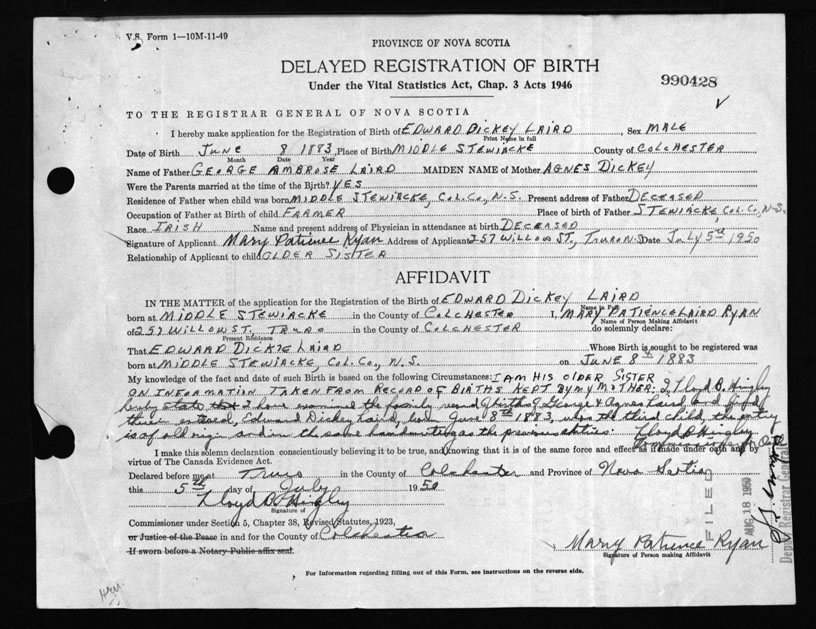 V.S. Form 1—10M-11-49
PROVINCE OF NOVA SCOTIA
DELAYED REGISTRATION OF BIRTH
Under the Vital Statistics Act, Chap. 3 Acts 1946
990428
TO THE REGISTRAR GENERAL OF NOVA SCOTIA
I hereby make application for the Registration of Birth of EDWARD DICKEY LAIRD, Sex MALE
Print Name in full
Date of Birth JUNE 8 1883, Place of Birth MIDDLE STEWIACKE County of COLCHESTER
Month Date Year
Name of Father GEORGE AMBROSE LAIRD MAIDEN NAME of Mother AGNES DICKEY
Were the Parents married at the time of the Birth? YES
Residence of Father when child was born MIDDLE STEWIACKE, COL. CO., N.S. Present address of Father DECEASED
Occupation of Father at Birth of child FARMER Place of birth of Father STEWIACKE, COL. CO., N.S.
Race IRISH Name and present address of Physician in attendance at birth DECEASED
Signature of Applicant Mary Patience Ryan Address of Applicant 257 WILLOW ST., TRURO N.S. Date July 5th 1950
Relationship of Applicant to child OLDER SISTER
AFFIDAVIT
IN THE MATTER of the application for the Registration of the Birth of EDWARD DICKEY LAIRD
Name in Full
born at MIDDLE STEWIACKE in the County of COLCHESTER I, MARY PATIENCE LAIRD RYAN
Name of Person Making Affidavit
of 257 WILLOW ST., TRURO in the County of COLCHESTER do solemnly declare:
Present Residence
That EDWARD DICKIE LAIRD Whose Birth is sought to be registered was
born at MIDDLE STEWIACKE, COL. CO., N.S. on JUNE 8th 1883
My knowledge of the fact and date of such Birth is based on the following Circumstances: I AM HIS OLDER SISTER
ON INFORMATION TAKEN FROM RECORD OF BIRTHS KEPT BY MY MOTHER: I, Lloyd B. Higley
state that I have examined the family record of births of George & Agnes Laird, and find
entered, Edward Dickey Laird, born June 8th 1883, the third child, the entry
is of old origin and in the same handwriting as the previous entries. Lloyd B Higley
I make this solemn declaration conscientiously believing it to be true, and knowing that it is of the same force and effect as if made under oath and by
virtue of The Canada Evidence Act.
Declared before me at Truro in the County of Colchester and Province of Nova Scotia
this 5th day of July 1950
Lloyd B Higley
Signature of
Commissioner under Section 5, Chapter 38, Revised Statutes, 1923,
or Justice of the Peace in and for the County of Colchester
If sworn before a Notary Public affix seal.
Mary Patience Ryan
Signature of Person making Affidavit
FILED
AUG 18 1950
Deputy Registrar General
For Information regarding filling out of this Form, see instructions on the reverse side.